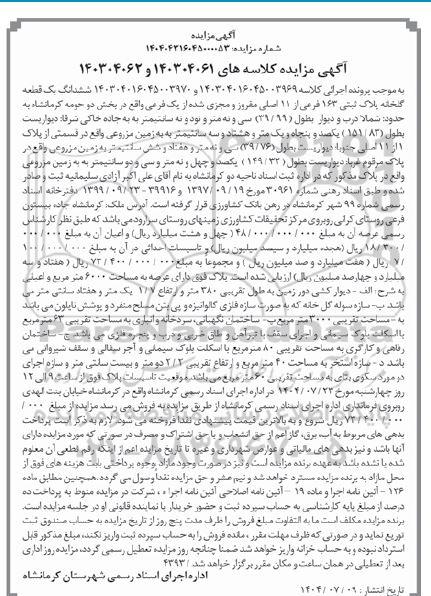 آگهی مزایده
شماره مزایده: ۱۴۰۴۰۴۳۱۶۰۴۵۰۰۰۰۵۳
آگهی مزایده کلاسه های ۱۴۰۳۰۴۰۶۱ و ۱۴۰۳۰۴۰۶۲
به موجب پرونده اجرائی کلاسه ۱۴۰۳۰۴۰۱۶۰۴۵۰۰۳۹۶۹ و ۱۴۰۳۰۴۰۱۶۰۴۵۰۰۳۹۷۰ ششدانگ یک قطعه
گلخانه پلاک ثبتی ۱۶۳ فرعی از ۱۱ اصلی مفروز و مجزی شده از یک فرعی واقع در بخش دو حومه کرمانشاه به
حدود: شمالا درب و دیوار بطول (۳۹/۹۹) سی و نه متر و نود و نه سانتیمتر به به جاده خاکی شرقا: دیواریست
بطول (۱۵۱/۸۳) یکصد و پنجاه و یک متر و هشتاد و سه سانتیمتر به به زمین مزروعی واقع در قسمتی از پلاک
۱ از ۱۱ اصلی جنوبا: دیواریست بطول (۳۹/۷۶) سی و نه متر و هفتاد و شش سانتیمتر به زمین مزروعی واقع در
پلاک مرقوم غربا: دیواریست بطول (۱۴۹/۳۲) یکصد و چهل و نه متر و سی و دو سانتیمتر به به زمین مزروعی
واقع در پلاک مذکور که در اداره ثبت اسناد ناحیه دو کرمانشاه به نام آقای علی اکبر آزادی سلیمانیه ثبت و صادر
شده و طبق اسناد رهنی شماره ۳۰۹۶۱ مورخ ۱۳۹۷/۰۹/۱۹ و ۳۹۹۱۶ - ۱۳۹۹/۰۹/۲۳ دفترخانه اسناد
رسمی شماره ۹۹ شهر کرمانشاه در رهن بانک کشاورزی قرار گرفته است. آدرس ملک: کرمانشاه جاده بیستون
فرعی روستای کرانی روبروی مرکز تحقیقات کشاورزی زمینهای روستای سرارودمی باشد که طبق نظر کارشناس
رسمی عرصه آن به مبلغ ۴۸/۰۰۰/۰۰۰/۰۰۰ ( چهل و هشت میلیارد ریال) و اعیان آن به مبلغ ۰۰۰/۰۰۰
/۱۸/۳۰۰ ریال (هجده میلیارد و سیصد میلیون ریال) و تاسیسات احداثی در آن به مبلغ ۰۰۰/۰۰۰/۱۰۰
/۷ ریال ( هفت میلیارد و صد میلیون ریال ) و مجموعا به مبلغ ۷۳/۴۰۰/۰۰۰/۰۰۰ ریال ( هفتاد و سه
میلیارد و چهارصد میلیون ریال) ارزیابی شده است. پلاک فوق دارای عرصه به مساحت ۶۰۰۰ متر مربع و اعیانی
به شرح: الف - دیوار کشی دور زمین به طول تقریبی ۳۸۰ متر و ارتفاع ۱/۷ یک متر و هفتاد سانتی متر می
باشد ب- سازه سوله گل خانه که به صورت سازه فلزی گالوانیزه و پی بتن مسلح منفرد و پوشش نایلون می باشد
به مساحت تقریبی ۳۰۰۰ متر مربع پ- ساختمان نگهبانی، سردخانه و انباری به مساحت تقریبی ۶۳ مترمربع
با اسکلت بلوک سیمانی و اجرای سقف با تیرآهن و طاق ضربی و درب و پنجره فلزی می باشد ج - ساختمان
رفاهی و کارگری به مساحت تقریبی ۸۰ مترمربع با اسکلت بلوک سیمانی و آجر سفالی و سقف شیروانی می
باشد د - سازه استخر به مساحت ۴۰ متر مربع و ارتفاع تقریبی ۲/۲ دو متر و بیست سانتی متر و سازه اجرای
در مورد سکوی بتنی به مساحت تقریبی ۶۰ متر مربع می باشد و موقعیت تاسیسات پلاک فوق از ساعت ۹ الی ۱۲
روز چهارشنبه مورخ ۱۴۰۴/۰۷/۲۳ در اداره اجرای اسناد رسمی کرمانشاه واقع در کرمانشاه خیابان بنت لهدی
روبروی فرمانداری اداره اجرای اسناد رسمی کرمانشاه از طریق مزایده به فروش می رسد مزایده از مبلغ ۰۰۰/
۷۳/۴۰۰/۰۰۰ ریال شروع و به بالاترین قیمت پیشنهادی نقدا فروخته می شود. لازم به ذکر است پرداخت
بدهی های مربوط به آب، برق، گاز اعم از حق انشعاب و یا حق اشتراک و مصرف در صورتی که مورد مزایده دارای
آنها باشد و نیز بدهی های مالیاتی و عوارض شهرداری و غیره تا تاریخ مزایده اعم از اینکه رقم قطعی آن معلوم
شده یا نشده باشد به عهده برنده مزایده است و نیز در صورت وجود مازاد وجوه پرداختی بابت هزینه های فوق از
محل مازاد به برنده مزایده مسترد خواهد شد و نیم عشر و حق مزایده نقدا وصول می گردد. همچنین مطابق ماده
۱۲۶ - آئین نامه اجرا و ماده ۱۹ - آئین نامه اصلاحی آئین نامه اجرا ، شرکت در مزایده منوط به پرداخت ده
درصد از مبلغ پایه کارشناسی به حساب سپرده ثبت و حضور خریدار یا نماینده قانونی او در جلسه مزایده است.
برنده مزایده مکلف است ما به التفاوت مبلغ فروش را ظرف مدت پنج روز از تاریخ مزایده به حساب صندوق ثبت
تودیع نماید و در صورتی که ظرف مهلت مقرر ، مانده فروش را به حساب سپرده ثبت واریز نکند، مبلغ مذکور قابل
استرداد نبوده و به حساب خزانه واریز خواهد شد ضمنا چنانچه روز مزایده تعطیل رسمی گردد، مزایده روز اداری
بعد از تعطیلی در همان ساعت و مکان مقرر برگزار خواهد شد. / ۴۳۹۳
اداره اجرای اسناد رسمی شهرستان کرمانشاه
تاریخ انتشار : ۱۴۰۴/۰۷/۰۶